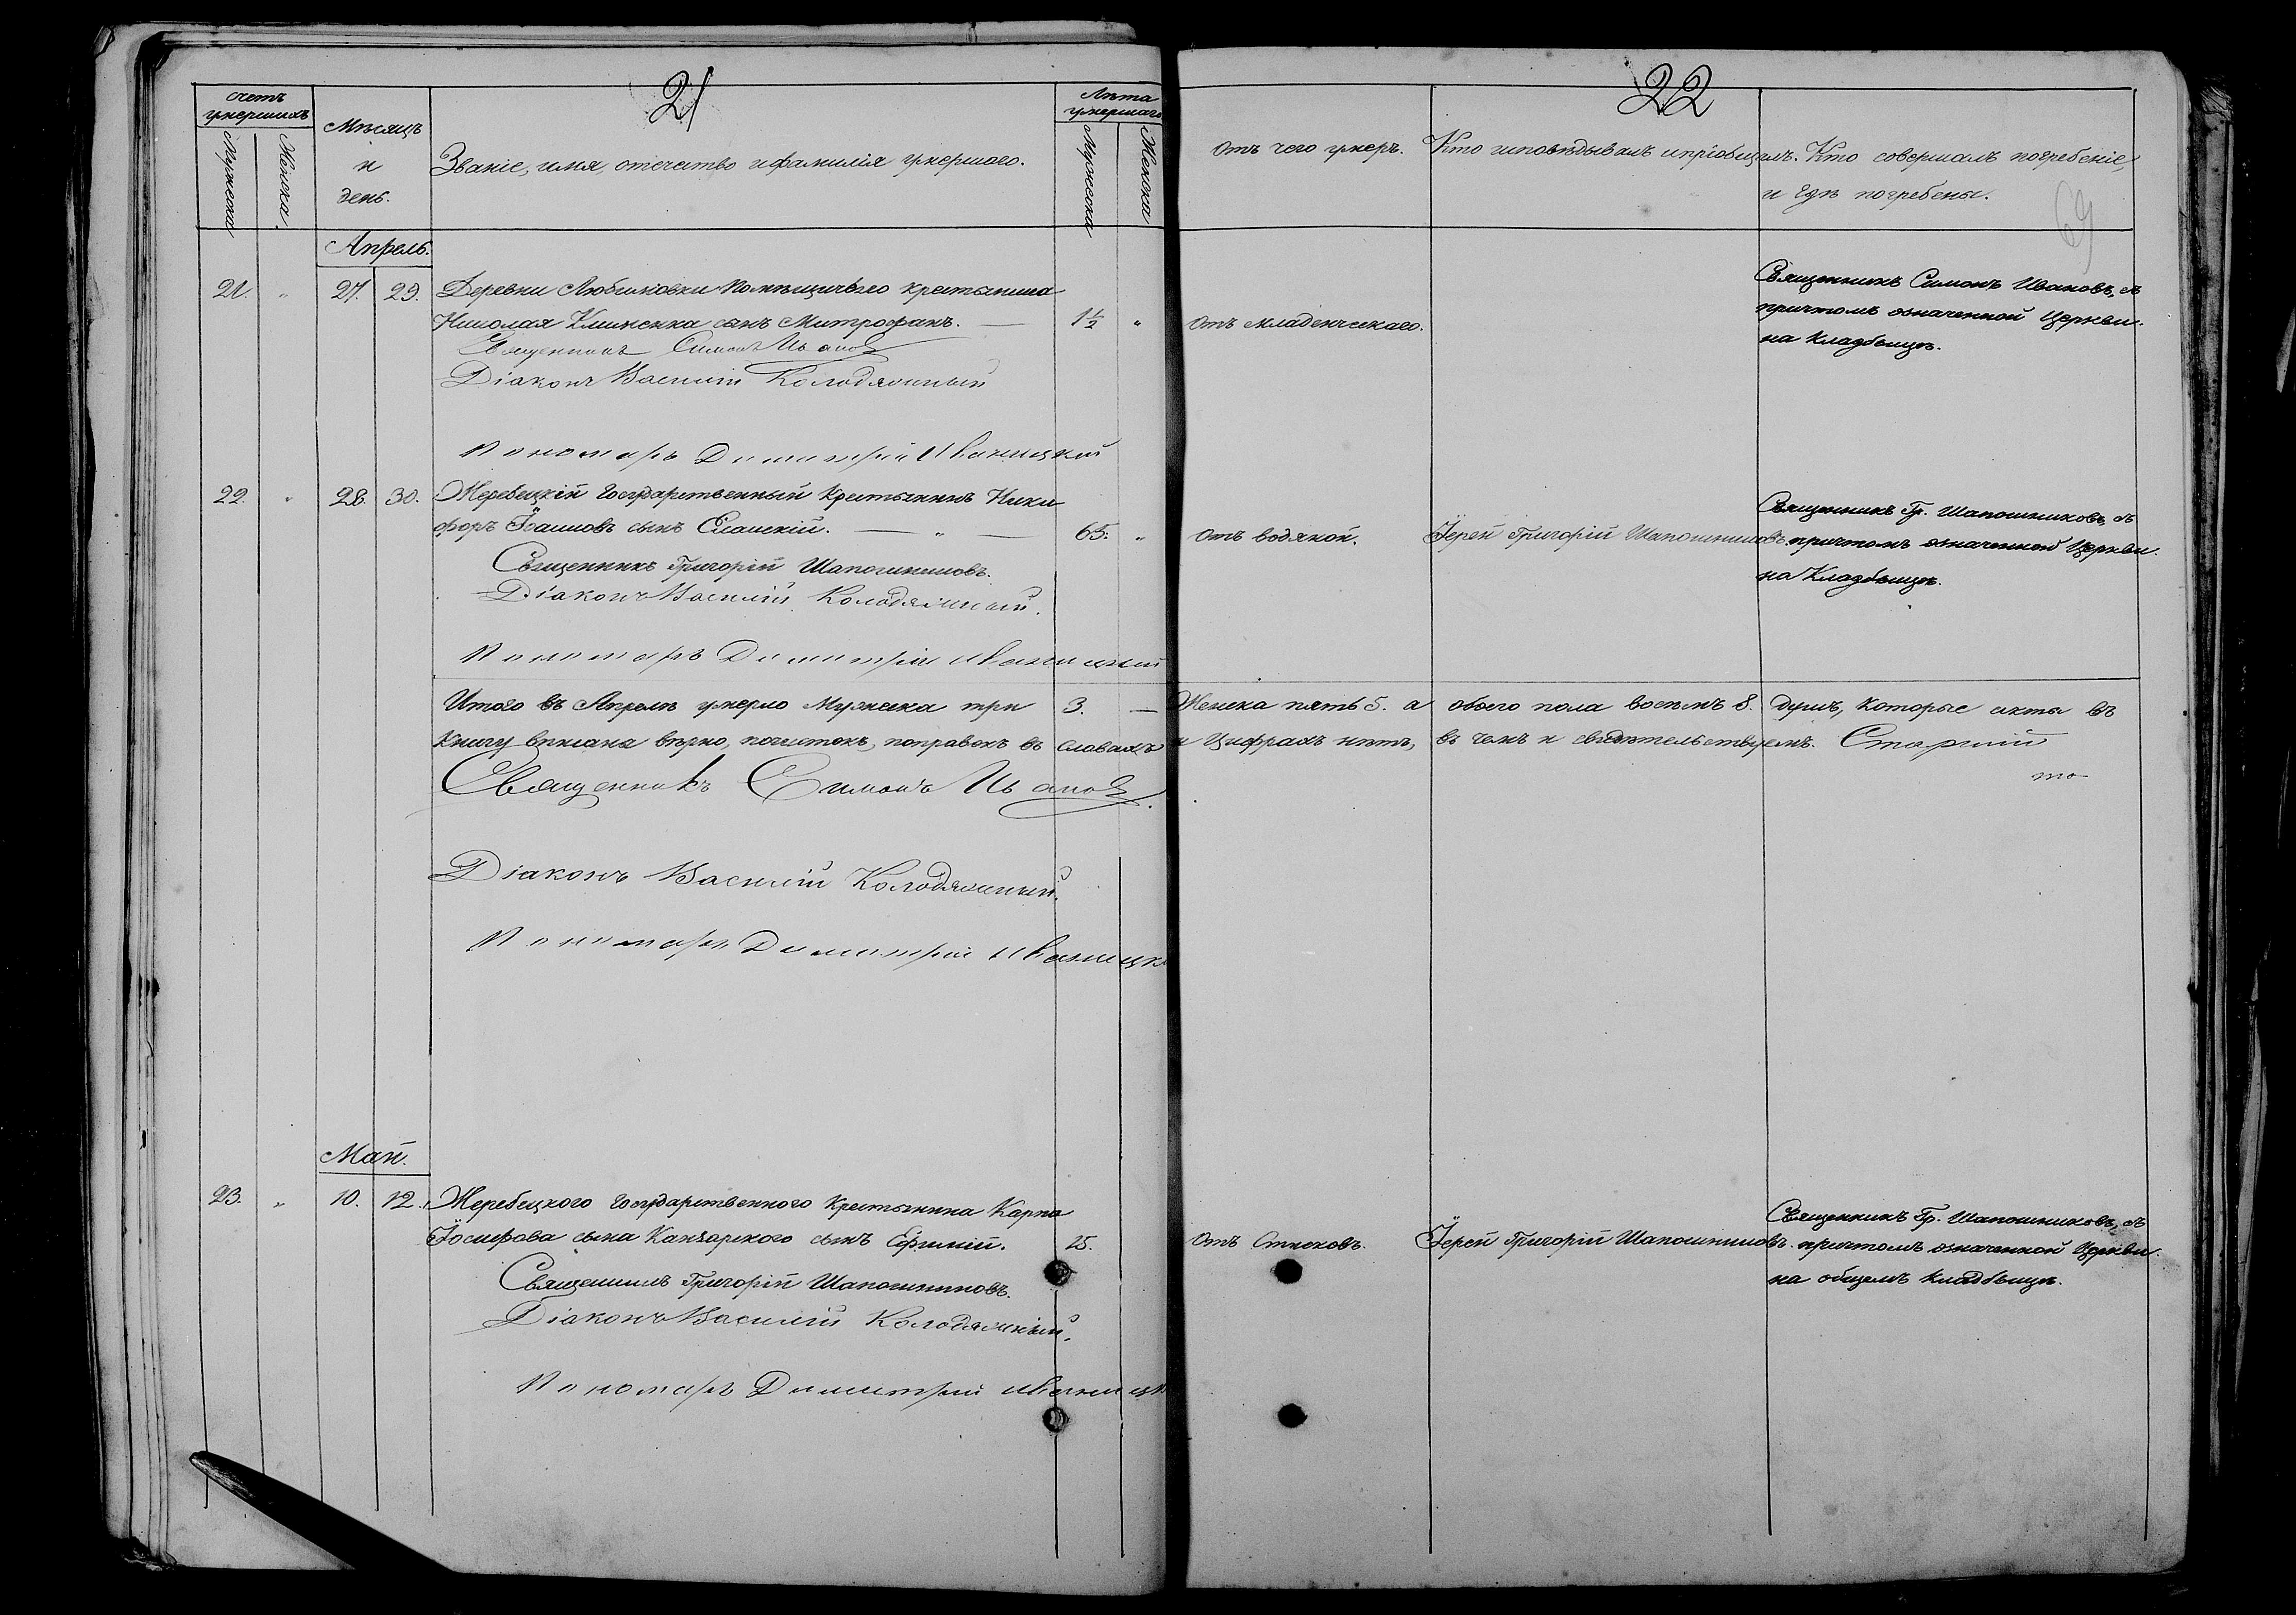 21
22
69
Счетъ умершихъ
Мужеска
Женска.
Мѣсяцъ и день.
Званіе, имя, отечество и фамилія умершаго.
Лѣта умершаго
Мужеска
Женска
Отъ чего умеръ.
Кто исповѣдывалъ и пріобщалъ.
Кто совершалъ погребеніе,
и гдѣ погребены.
Апрель.
21. " 27. 29. Деревни Любимовки помѣщичьего крестьянина
Николая сынъ Митрофанъ. — 1½ " Отъ младенческаго.
Священникъ Симонъ Ивановъ, съ
причтомъ означенной Церкви.
на Кладбищѣ.
Священникъ Симонъ Ивановъ
Діаконъ Василій Колодяжный
Пономарь Димитрій Иваницкій
22. " 28. 30. Жеребецкій Государственный крестьянинъ Ники
форъ сынъ — " — 65. " Отъ водяной. Іерей Григорій Шапошниковъ.
Священникъ Гр. Шапошниковъ, съ
причтомъ означенной Церкви.
на Кладбищѣ.
Священникъ Григорій Шапошниковъ.
Діаконъ Василій Колодяжный.
Пономарь Димитрій Иваницкій
Итого въ Апрелѣ умерло Мужеска три 3. — Женска пять 5. а обоего пола восемь 8. душъ, которые акты въ
Книгу вписаны вѣрно, почистокъ, поправокъ въ словахъ и Цифрахъ нѣтъ, въ чемъ и свидѣтельствуемъ. Старшій
Священникъ Симонъ Ивановъ.
Діаконъ Василій Колодяжный.
Пономарь Димитрій Иваницк
Май.
23. " 10. 12. Жеребецкого Государственного Крестьянина Карпа
Іосифова сына сынъ Ефимій. 25. Отъ Іерей Григорій Шапошниковъ.
Священникъ Гр. Шапошниковъ, съ
причтомъ означенной Церкви.
на общемъ кладбищѣ.
Священникъ Григорій Шапошниковъ.
Діаконъ Василій Колодяжный.
Пономарь Димитрій Иваницк